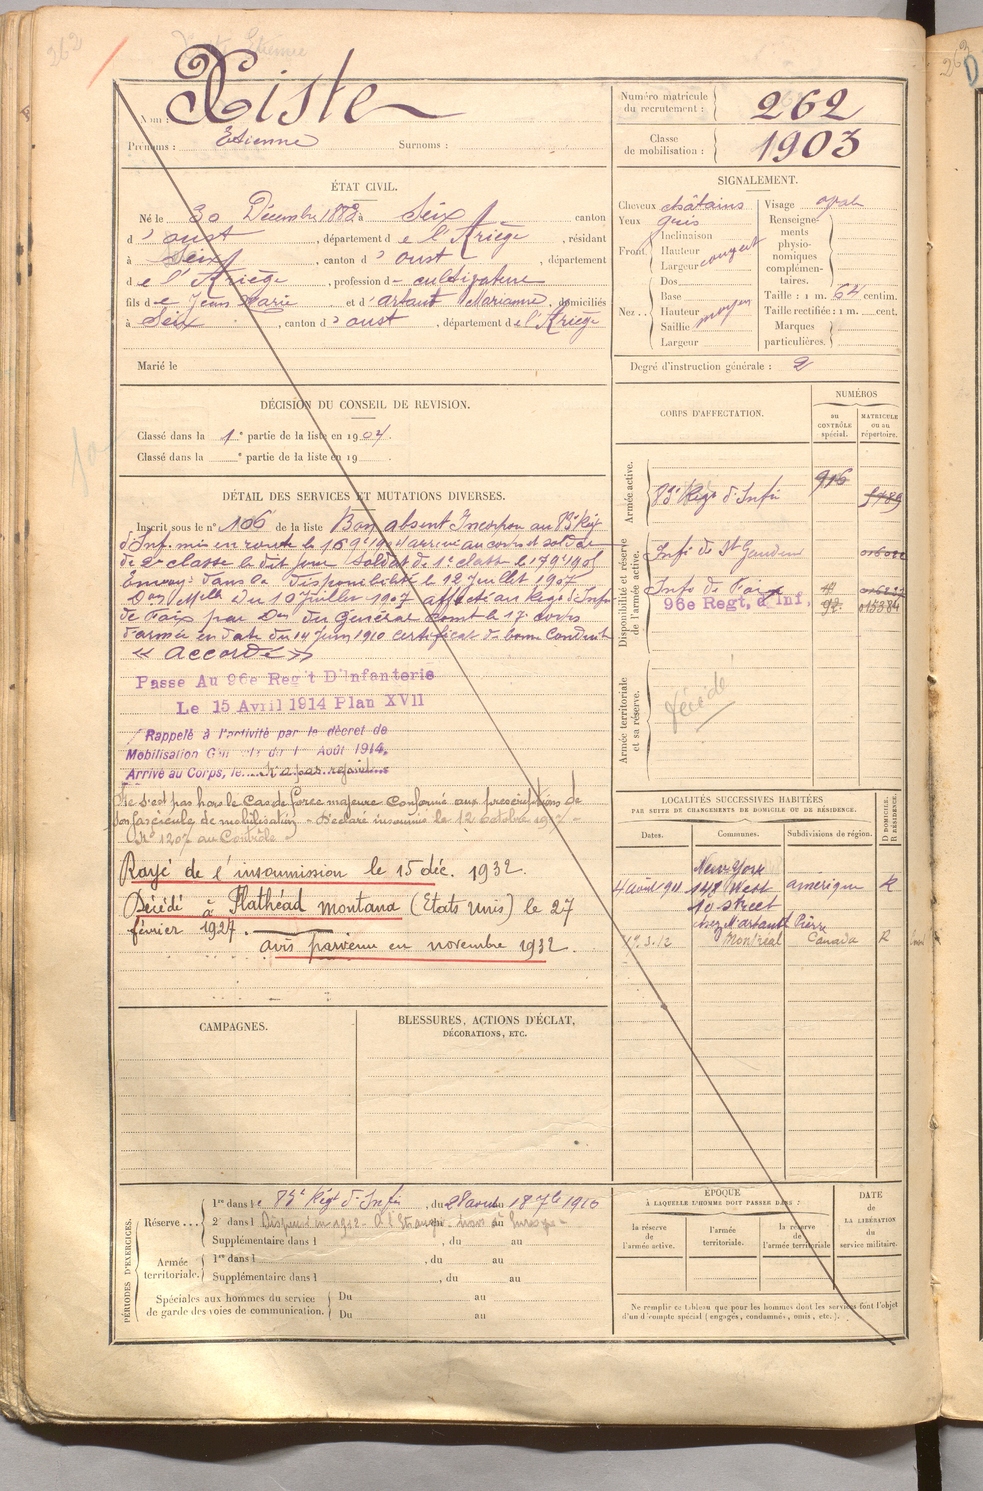 262
Nom : Xiste
Prénoms : Etienne Surnoms :
Numéro matricule du recrutement : 262
Classe de mobilisation : 1903
ÉTAT CIVIL.
Né le 30 Décembre 1883 à Seix, canton
d'oust, département de l'Ariège, résidant
à Seix, canton d'oust, département
de l'Ariège, profession d cultivateur
fils de Jean Marie et d'artaut Marianne, domiciliés
à Seix, canton d'oust, département de l'Ariège
Marié le
SIGNALEMENT.
Cheveux châtains Visage ovale
Yeux gris
Front Inclinaison
Hauteur
Largeur
Nez Dos
Base
Hauteur moyen
Saillie
Largeur
Renseignements physionomiques complémentaires.
Taille : 1 m. 64 centim.
Taille rectifiée : 1 m. cent.
Marques particulières.
Degré d'instruction générale : 2
DÉCISION DU CONSEIL DE REVISION.
Classé dans la 1e partie de la liste en 1904.
Classé dans la e partie de la liste en 19
DÉTAIL DES SERVICES ET MUTATIONS DIVERSES.
Inscrit sous le n° 106 de la liste Bon absent Incorporé au 83e Rég
d'Inf. mis en route le arrivé au corps et soldat
de 2e classe le dit jour Soldat de 1e classe le
Envoyé dans la Disponibilité le 12 Juillet 1907
Don Melle du 10 Juillet 1907 affecté au Régt d'Infie
de Foix par Don du Général Comt le 17e corps
d'armée en date du 14 Juin 1910 certificat de bonne Conduite
« Accordé »
Passe Au 96e Reg't D'Infanterie
Le 15 Avril 1914 Plan XVII
Rappelé à l'activité par le décret de
Mobilisation Générale du 1er Août 1914.
Arrivé au Corps, le N'a pas rejoint
Ne s'est pas hors le Cas de force majeure Conformé aux prescriptions de
son fascicule de mobilisation - Déclaré insoumis le 12 octobre
N° 1207 au Contrôle
Rayé de l'insoumission le 15 déc. 1932.
Décédé à Flathéad montana (Etats Unis) le 27
février 1927.
avis parvenu en novembre 1932.
CORPS D'AFFECTATION.
NUMÉROS
DU CONTRÔLE spécial.
MATRICULE OU DU répertoire.
Armée active.
83e Régt d'Infie 916
Disponibilité et réserve de l'armée active.
Infie de St Gaudens
Infie de Foix
96e Regt, d'Inf. 92.
Armée territoriale et sa réserve.
décédé
LOCALITÉS SUCCESSIVES HABITÉES
PAR SUITE DE CHANGEMENTS DE DOMICILE OU DE RÉSIDENCE.
Dates. Communes. Subdivisions de région. D DOMICILE. R RÉSIDENCE.
New York
4 août 1911 148 West amérique R
10 street
chez Mr artault Pierre
17.3.12 Montréal Canada R
CAMPAGNES.
BLESSURES, ACTIONS D'ÉCLAT,
DÉCORATIONS, ETC.
PÉRIODES D'EXERCICES.
Réserve 1re dans le 83e Régt d'Infie, du 28 août au 18 7bre 1910
2e dans l Dispensé en 1912 - A l'Etranger - hors d'Europe -
Supplémentaire dans l , du au
Armée territoriale. 1re dans l , du au
Supplémentaire dans l , du au
Spéciales aux hommes du service de garde des voies de communication. Du au
Du au
ÉPOQUE
À LAQUELLE L'HOMME DOIT PASSER DANS :
la réserve de l'armée active.
l'armée territoriale.
la réserve de l'armée territoriale
DATE DE LA LIBÉRATION du service militaire.
Ne remplir ce tableau que pour les hommes dont les services font l'objet
d'un décompte spécial (engagés, condamnés, omis, etc.).